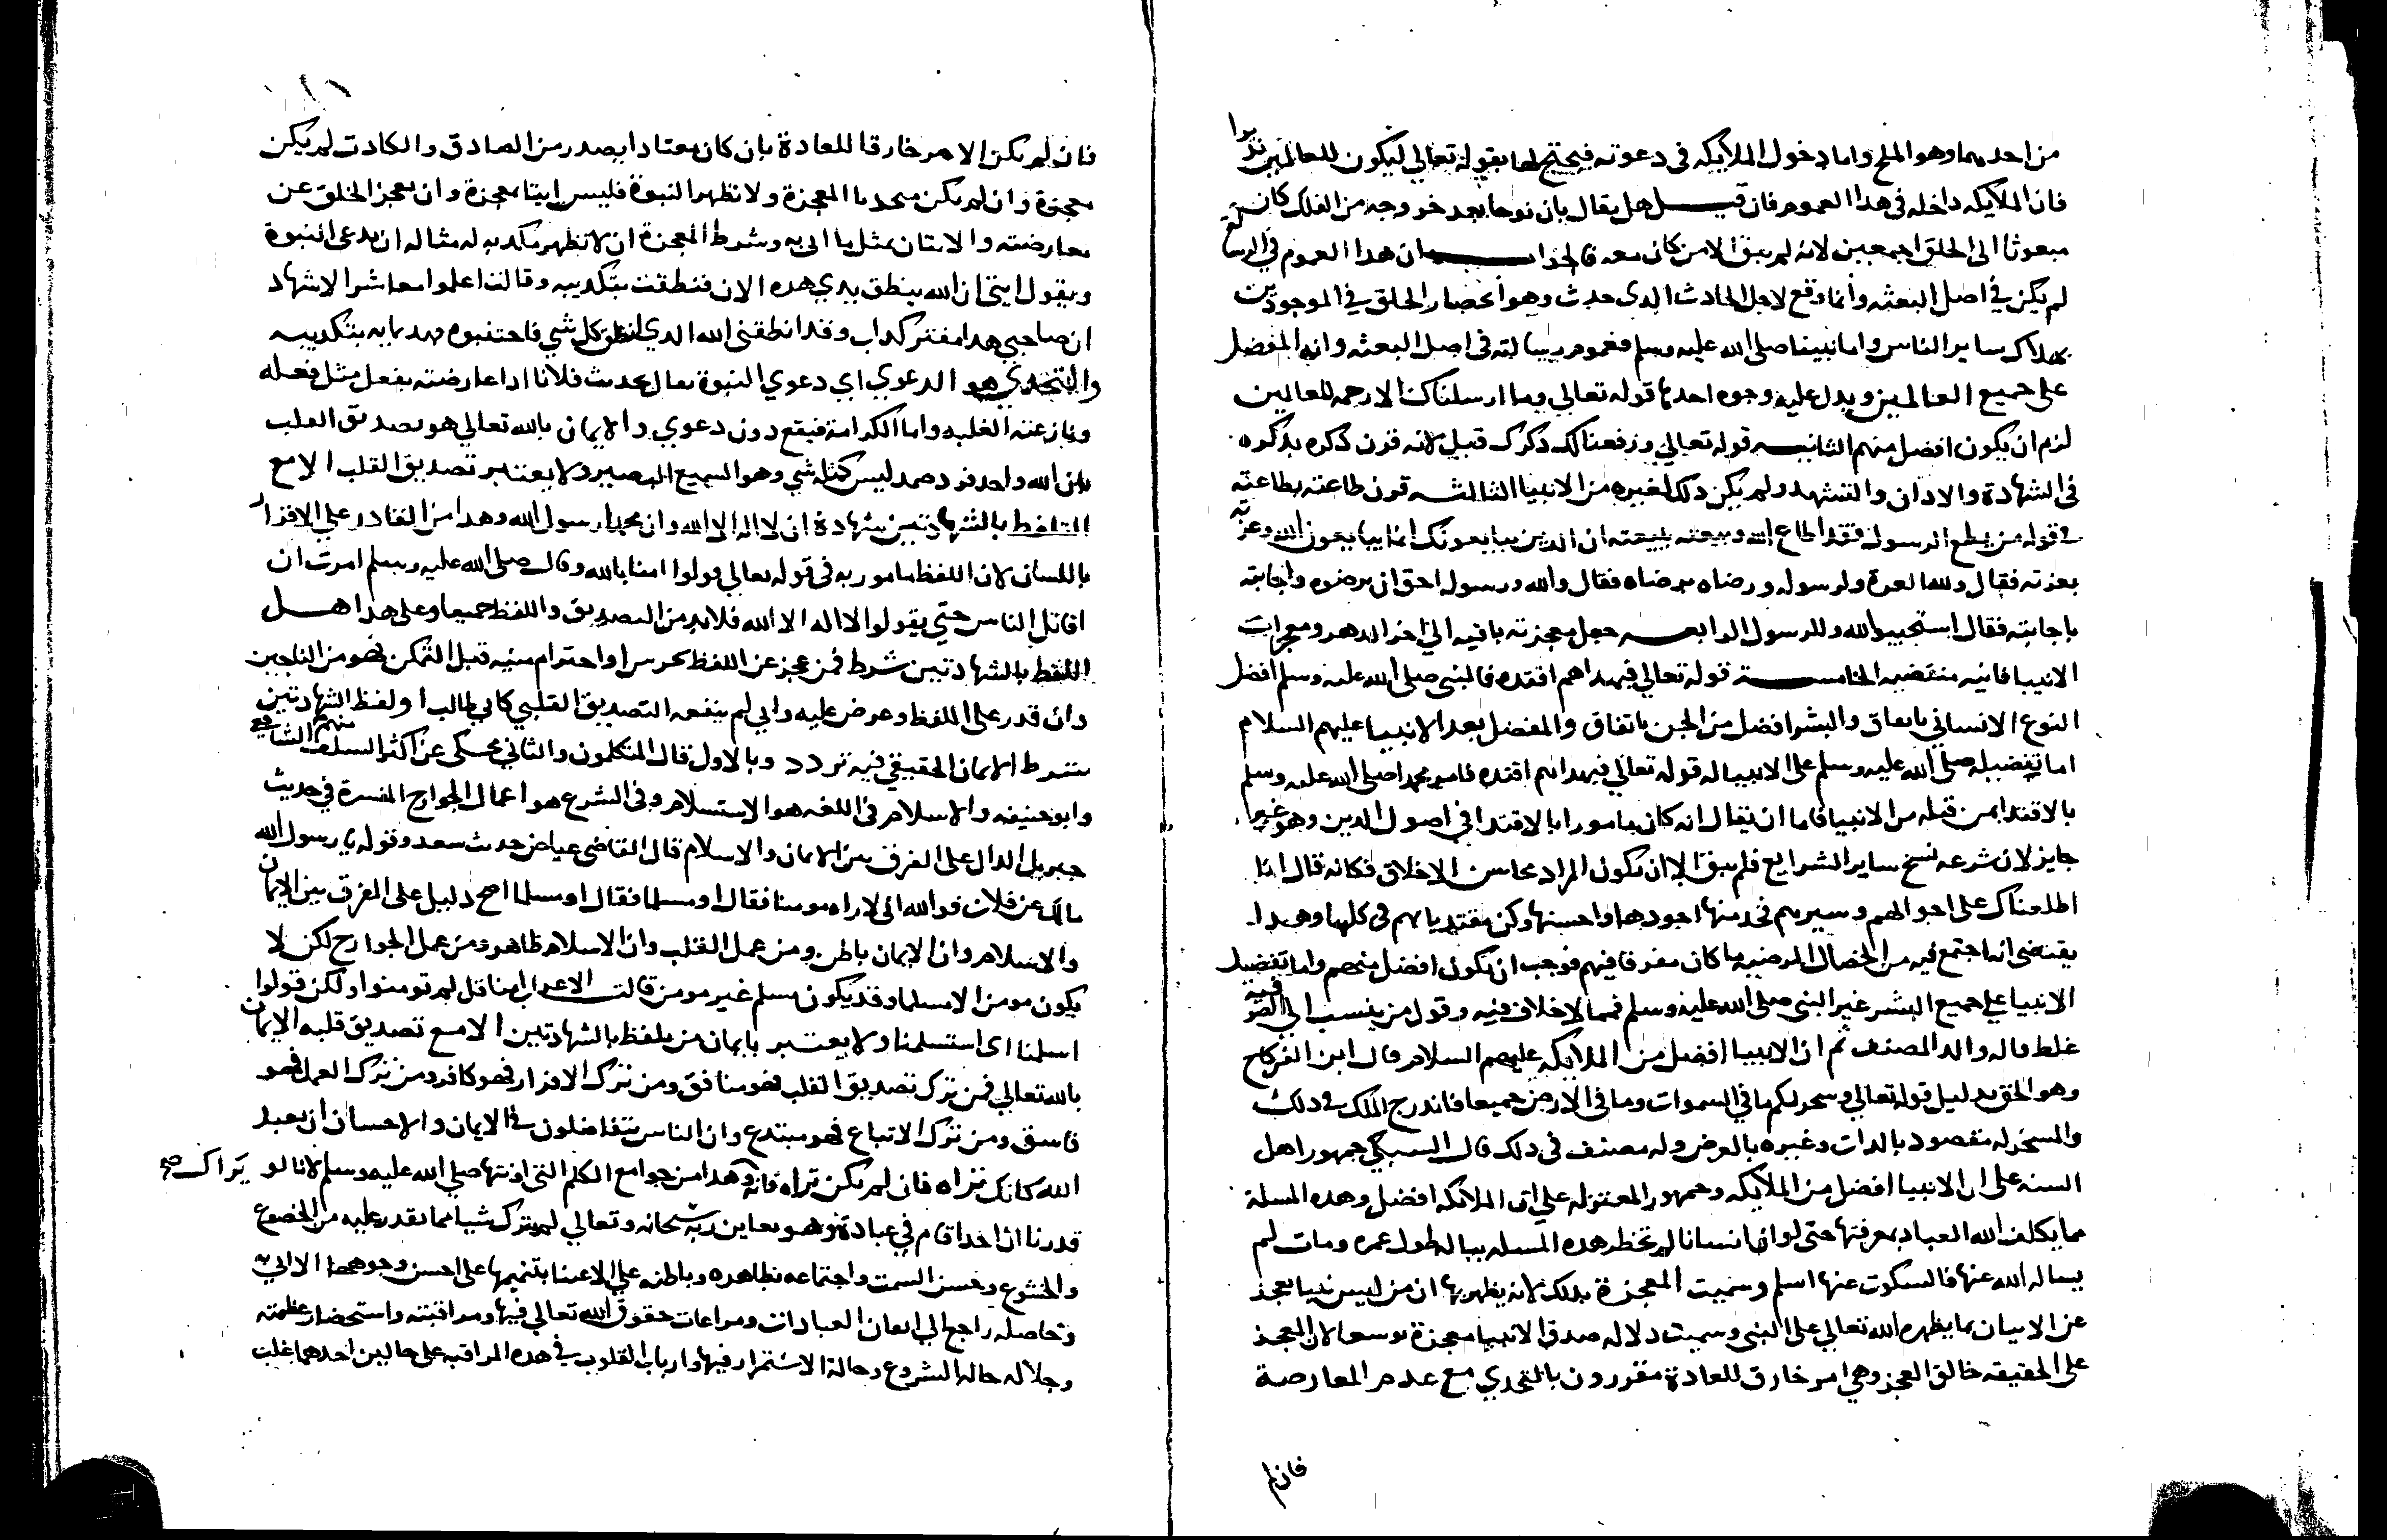 من احدهما وهو الملح واما دخول الملايكه فى دعوته فيحتج لها بقوله تعالي ليكون للعالمين نذيرا
فان الملايكه داخله فى هدا العموم فان قيل هل يقال بان نوحا بعد خروجه من الفلك كان
مبعوثا الى الخلق اجمعين لانه لم يبق الا من كان معه فالجواب ان هدا العموم في الرسالة
لم يكن في اصل البعثه وانما وقع لاجل الحادث الدى حدث وهو انحصار الخلق في الموجودين
بهلاك ساير الناس واما نبينا صلى الله عليه وسلم فعموم رسالته فى اصل البعثه وانه المفضل
على جميع العالمين ويدل عليه وجوه احدها قوله تعالي وما ارسلناك الا رحمه للعالمين
لزم ان يكون افضل منهم الثانيه قوله تعالي ورفعنا لك دكرك قيل لانه قرن دكره بدكره
فى الشهادة والادان والتشهد ولم يكن دلك لغيره من الانبيا الثالثه قرن طاعته بطاعته
في قوله من يطع الرسول فقد اطاع الله وبيعته ببيعته ان الدين يبايعونك انما يبايعون الله وعزته
بعزته فقال ولله العزة ولرسوله ورضاه برضاه فقال والله ورسوله احق ان يرضوه واجابته
باجابته فقال استجيبوا لله وللرسول الرابعه جعل معجزته باقيه الي اخر الدهر ومعجزات
الانبيا فانيه منقضيه الخامسة قوله تعالي فبهداهم اقتده فالنبى صلى الله عليه وسلم افضل
النوع الانساني باتفاق والبشر افضل من الجن باتفاق والمفضل بعد الانبيا عليهم السلام
اما تفضيله صلى الله عليه وسلم على الانبيا له قوله تعالي فبهداهم اقتده فامر محمدا صلى الله عليه وسلم
بالاقتدا بمن قبله من الانبيا فاما ان يقال انه كان مامورا بالاقتدا في اصول الدين وهو غير
جايز لان شرعه نسخ ساير الشرايع فلم يبق الا ان يكون المراد محاسن الاخلاق فكانه قال انا
اطلعناك على احوالهم وسيرهم فخد منها اجودها واحسنها وكن مقتديا بهم فى كلها وهدا
يقتضى انه اجتمع فيه من الخصال المرضيه ما كان مفرقا فيهم فوجب ان يكون افضل منهم واما تفضيل
الانبيا علي جميع البشر غير النبى صلى الله عليه وسلم فمما لا خلاف فيه وقول من ينسب الى الصوفيه
غلط قاله والد المصنف ثم ان الانبيا افضل من الملايكه عليهم السلام قال ابن الفركاح
وهو الحق بدليل قوله تعالي وسخر لكم ما في السموات وما فى الارض جميعا فاندرج الملك في دلك
والمسخر له مقصود بالدات وغيره بالعرض وله مصنف فى دلك قال السبكي جمهور اهل
السنه على ان الانبيا افضل من الملايكه وجمهور المعتزله علي ان الملائكه افضل وهده المسلة
مما يكلف الله العباد بمعرفتها حتى لو ان انسانا لم تخطر هده المسله بباله طول عمره ومات لم
يساله الله عنها فالسكوت عنها اسلم وسميت المعجزة بدلك لانه يظهر بها ان من ليس نبيا يعجز
عن الاتيان بما يظهره الله تعالي على النبى وسميت دلاله صدق الانبيا معجزة توسعا لان المعجز
على الحقيقه خالق العجز وهي امر خارق للعادة مقرون بالتحدي مع عدم المعارضة
فان لم
فان لم يكن الامر خارقا للعادة بان كان معتادا يصدر من الصادق والكادب لم يكن
معجزة وان لم يكن متحديا المعجزة ولا تظهر النبوة فليس ايتا معجزة وان يعجز الخلق عن
معارضته والاتيان بمثل ما اتى به وشرط المعجزة ان لا تظهر مكدبه له مثاله ان يدعى النبوة
ويقول ايتي ان الله ينطق يدي هده الان فنطقت بتكديبه وقالت اعلموا معاشر الاشهاد
ان صاحبي هدا مفتر كداب وقد انطقنى الله الدي انطق كل شي فاجتنبوه فهده ايه بتكديبه
والتحدي هو الدعوي اي دعوي النبوة يقال تحديث فلانا ادا عارضته بفعل مثل فعله
ونازعته الغلبه واما الكرامة فتقع دون دعوي والايمان بالله تعالي هو تصديق القلب
بان الله واحد فرد صمد ليس كمثله شي وهو السميع البصير ولا يعتبر تصديق القلب الا مع
التلفظ بالشهادتين شهادة ان لا اله الا الله وان محمدا رسول الله وهدا من القادر على الاقرار
باللسان لان اللفظ مامور به فى قوله تعالي قولوا امنا بالله وقال صلى الله عليه وسلم امرت ان
اقاتل الناس حتي يقولوا لا اله الا الله فلا بد من التصديق واللفظ جميعا وعلى هدا هل
اللفظ بالشهادتين شرط فمن عجز عن اللفظ لخرس او احترام منيه قبل التمكن فهو من الناجين
وان قدر على اللفظ وعرض عليه وابي لم ينفعه التصديق القلبي كابي طالب او لفظ الشهادتين
شرط الايمان الحقيقي فيه تردد وبالاول قال المتكلمون والثاني محكى عن اكثر السلف منهم الشافعي
وابو حنيفه والاسلام فى اللغه هو الاستسلام وفى الشرع هو اعمال الجوارح المفسرة في حديث
جبريل الدال على الفرق بين الايمان والاسلام قال القاضى عياض حديث سعد وقوله يا رسول الله
مالك عن فلان فوالله انى لاراه مومنا فقال او مسلما فقال او مسلما اصح دليل على الفرق بين الايمان
والاسلام وان الايمان باطن ومن عمل القلب وان الاسلام ظاهر ومن عمل الجوارح لكن لا
يكون مومن الا مسلما وقد يكون مسلم غير مومن قالت الاعراب امنا قل لم تومنوا ولكن قولوا
اسلمنا اى استسلمنا ولا يعتبر بايمان من يلفظ بالشهادتين الا مع تصديق قلبه الايمان
بالله تعالي فمن ترك تصديق القلب فهو منافق ومن ترك الاقرار فهو كافر ومن ترك العمل فهو
فاسق ومن ترك الاتباع فهو مبتدع وان الناس يتفاضلون في الايمان والاحسان ان تعبد
الله كانك تراه فان لم تكن تراه فانه يراك صح وهدا من جوامع الكلم التى اوتيها صلي الله عليه وسلم لانا لو
قدرنا ان احدا قام في عبادة وهو يعاين ربه سبحانه وتعالي لم يترك شيا مما يقدر عليه من الخضوع
والخشوع وحسن السمت واجتماعه بظاهره وباطنه علي الاعتنا بتتميمها على احسن وجوهها الا اتى به
وحاصله راجع الي اتقان العبادات ومراعات حقوق الله تعالي فيها ومراقبته واستحضار عظمته
وجلاله حاله الشروع وحالة الاستمرار فيها وارباب القلوب في هده المراقبه على حالين احدهما غلب